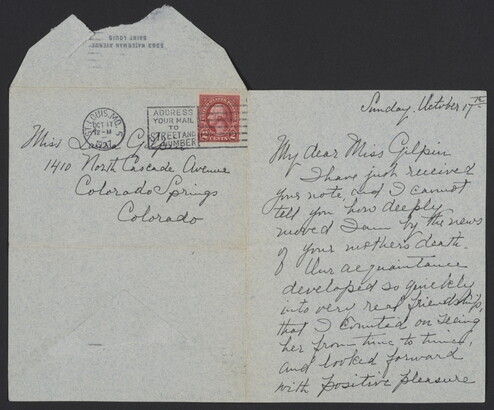 5363 WATERMAN AVENUE
SAINT LOUIS
ST. LOUIS, MO. 5
OCT 17
12-M
ADDRESS
YOUR MAIL
TO
STREET AND
NUMBER
2 CENTS 2
Miss Laura Gilpin
1410 North Cascade Avenue
Colorado Springs
Colorado
Sunday, October 17th
My dear Miss Gilpin
I have just received
your note, and I cannot
tell you how deeply
moved I am by the news
of your mother's death.
Our acquaintance
developed so quickly
into very real friendship,
that I counted on seeing
her from time to time,
and looked forward
with positive pleasure